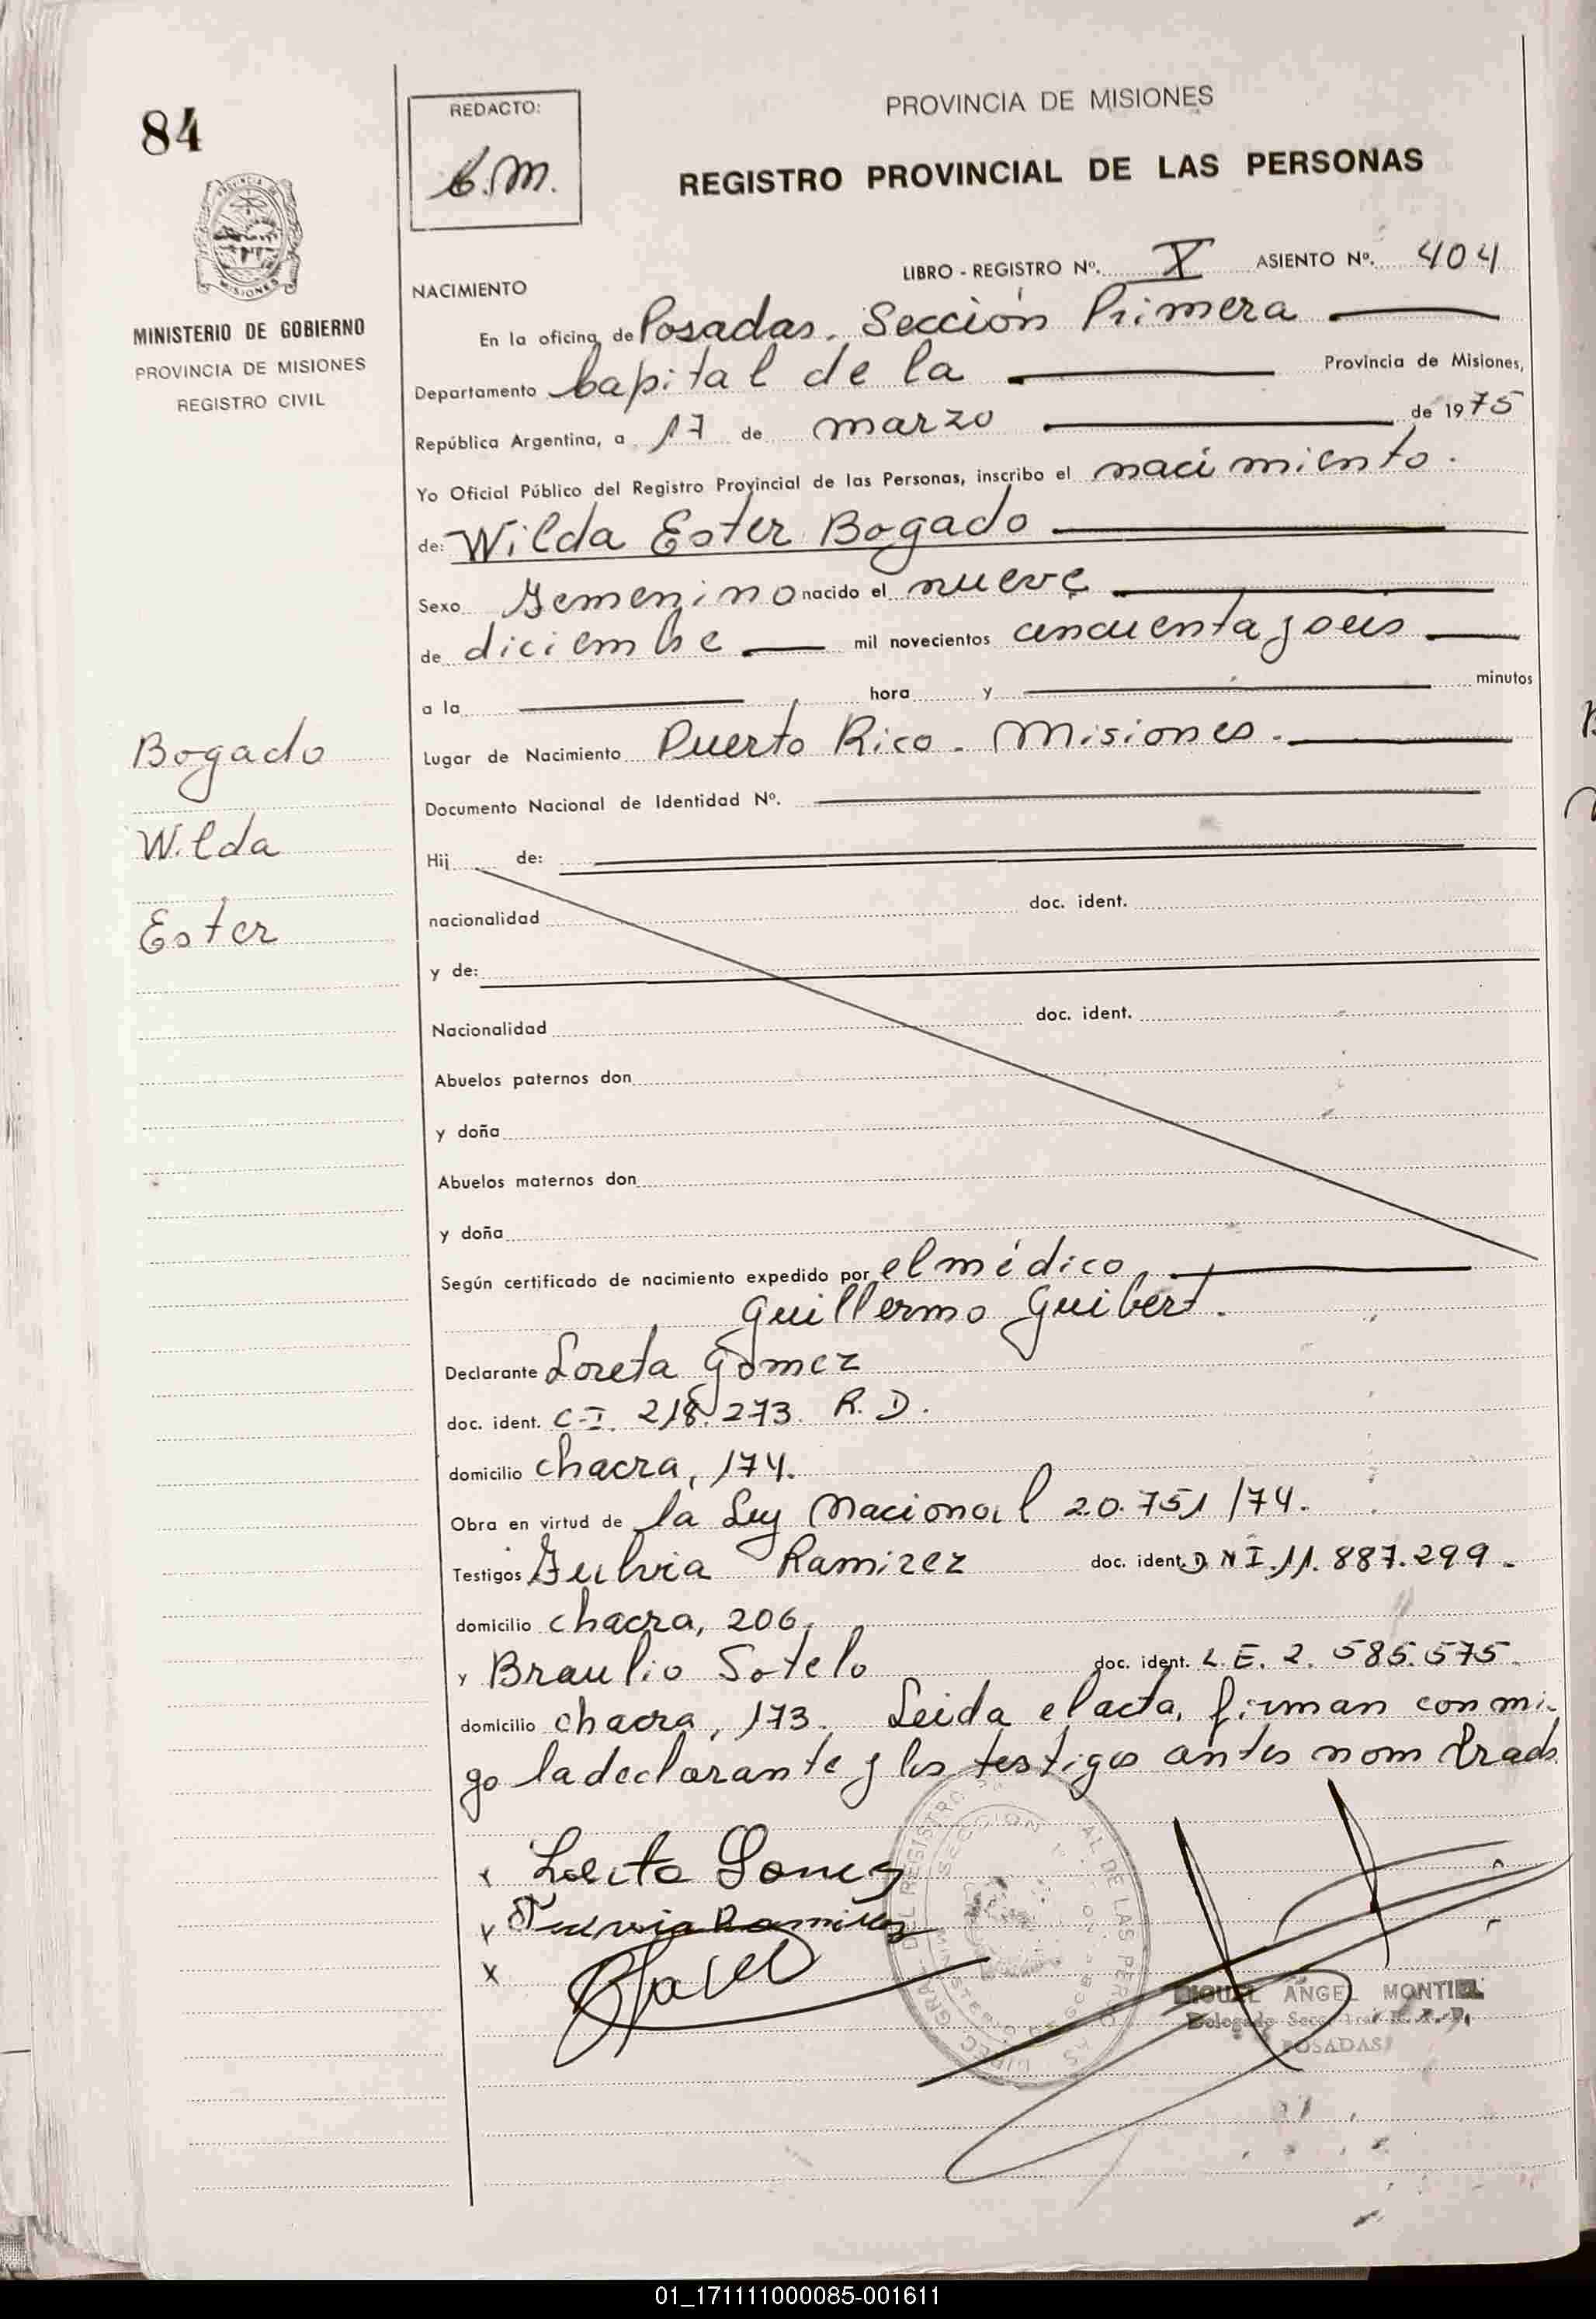 84
REDACTO:
C.M.
PROVINCIA DE MISIONES
REGISTRO PROVINCIAL DE LAS PERSONAS
MISIONES
MINISTERIO DE GOBIERNO
PROVINCIA DE MISIONES
REGISTRO CIVIL
LIBRO - REGISTRO Nº. X ASIENTO Nº. 404
NACIMIENTO
En la oficina de Posadas. Sección Primera
Departamento Capital de la Provincia de Misiones,
República Argentina, a 17 de marzo de 1975
Yo Oficial Público del Registro Provincial de las Personas, inscribo el nacimiento.
de: Wilda Ester Bogado
Sexo Femenino nacido el nueve
de diciembre mil novecientos cincuenta y seis
a la hora y minutos
Lugar de Nacimiento Puerto Rico - Misiones.
Bogado
Wilda
Ester
Documento Nacional de Identidad Nº.
Hij de:
nacionalidad doc. ident.
y de:
Nacionalidad doc. ident.
Abuelos paternos don
y doña
Abuelos maternos don
y doña
Según certificado de nacimiento expedido por el médico
Guillermo Guibert.
Declarante Loreta Gómez
doc. ident. C-I. 218.273. R.D.
domicilio chacra, 174.
Obra en virtud de la Ley Nacional 20.751/74.
Testigos Fulvia Ramirez doc. ident. DNI. 11.887.299.-
domicilio chacra, 206.
y Braulio Sotelo doc. ident. L.E. 2.585.575.
domicilio chacra, 173. Leida el acta, firman conmi-
go la declarante y los testigos antes nombrados
x Loreta Gomez
x Fulvia Ramirez
x
MIGUEL ANGEL MONTIEL
POSADAS
01_171111000085-001611